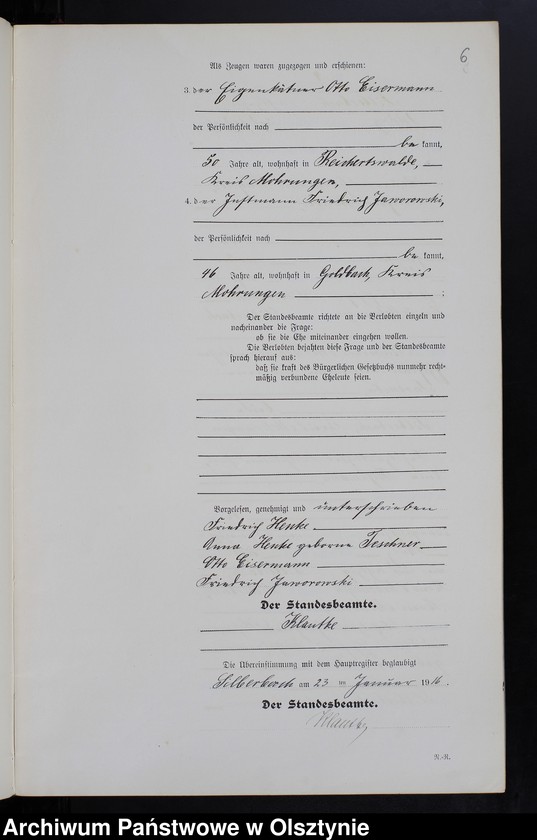 6
Als Zeugen waren zugezogen und erschienen:
3. der Eigenkätner Otto Eisermann
der Persönlichkeit nach
be kannt,
50 Jahre alt, wohnhaft in Reichertswalde,
Kreis Mohrungen,
4. der Instmann Friedrich Jaworowski,
der Persönlichkeit nach
be kannt,
46 Jahre alt, wohnhaft in Goldbach, Kreis
Mohrungen :
Der Standesbeamte richtete an die Verlobten einzeln und
nacheinander die Frage:
ob sie die Ehe miteinander eingehen wollen.
Die Verlobten bejahten diese Frage und der Standesbeamte
sprach hierauf aus:
daß sie kraft des Bürgerlichen Gesetzbuchs nunmehr recht-
mäßig verbundene Eheleute seien.
Vorgelesen, genehmigt und unterschrieben
Friedrich Henke
Anna Henke geborne Teschner
Otto Eisermann
Friedrich Jaworowski
Der Standesbeamte.
Klautke
Die Übereinstimmung mit dem Hauptregister beglaubigt
Silberbach am 23 ten Januar 1916.
Der Standesbeamte.
Klautke
N.-R.
Archiwum Państwowe w Olsztynie